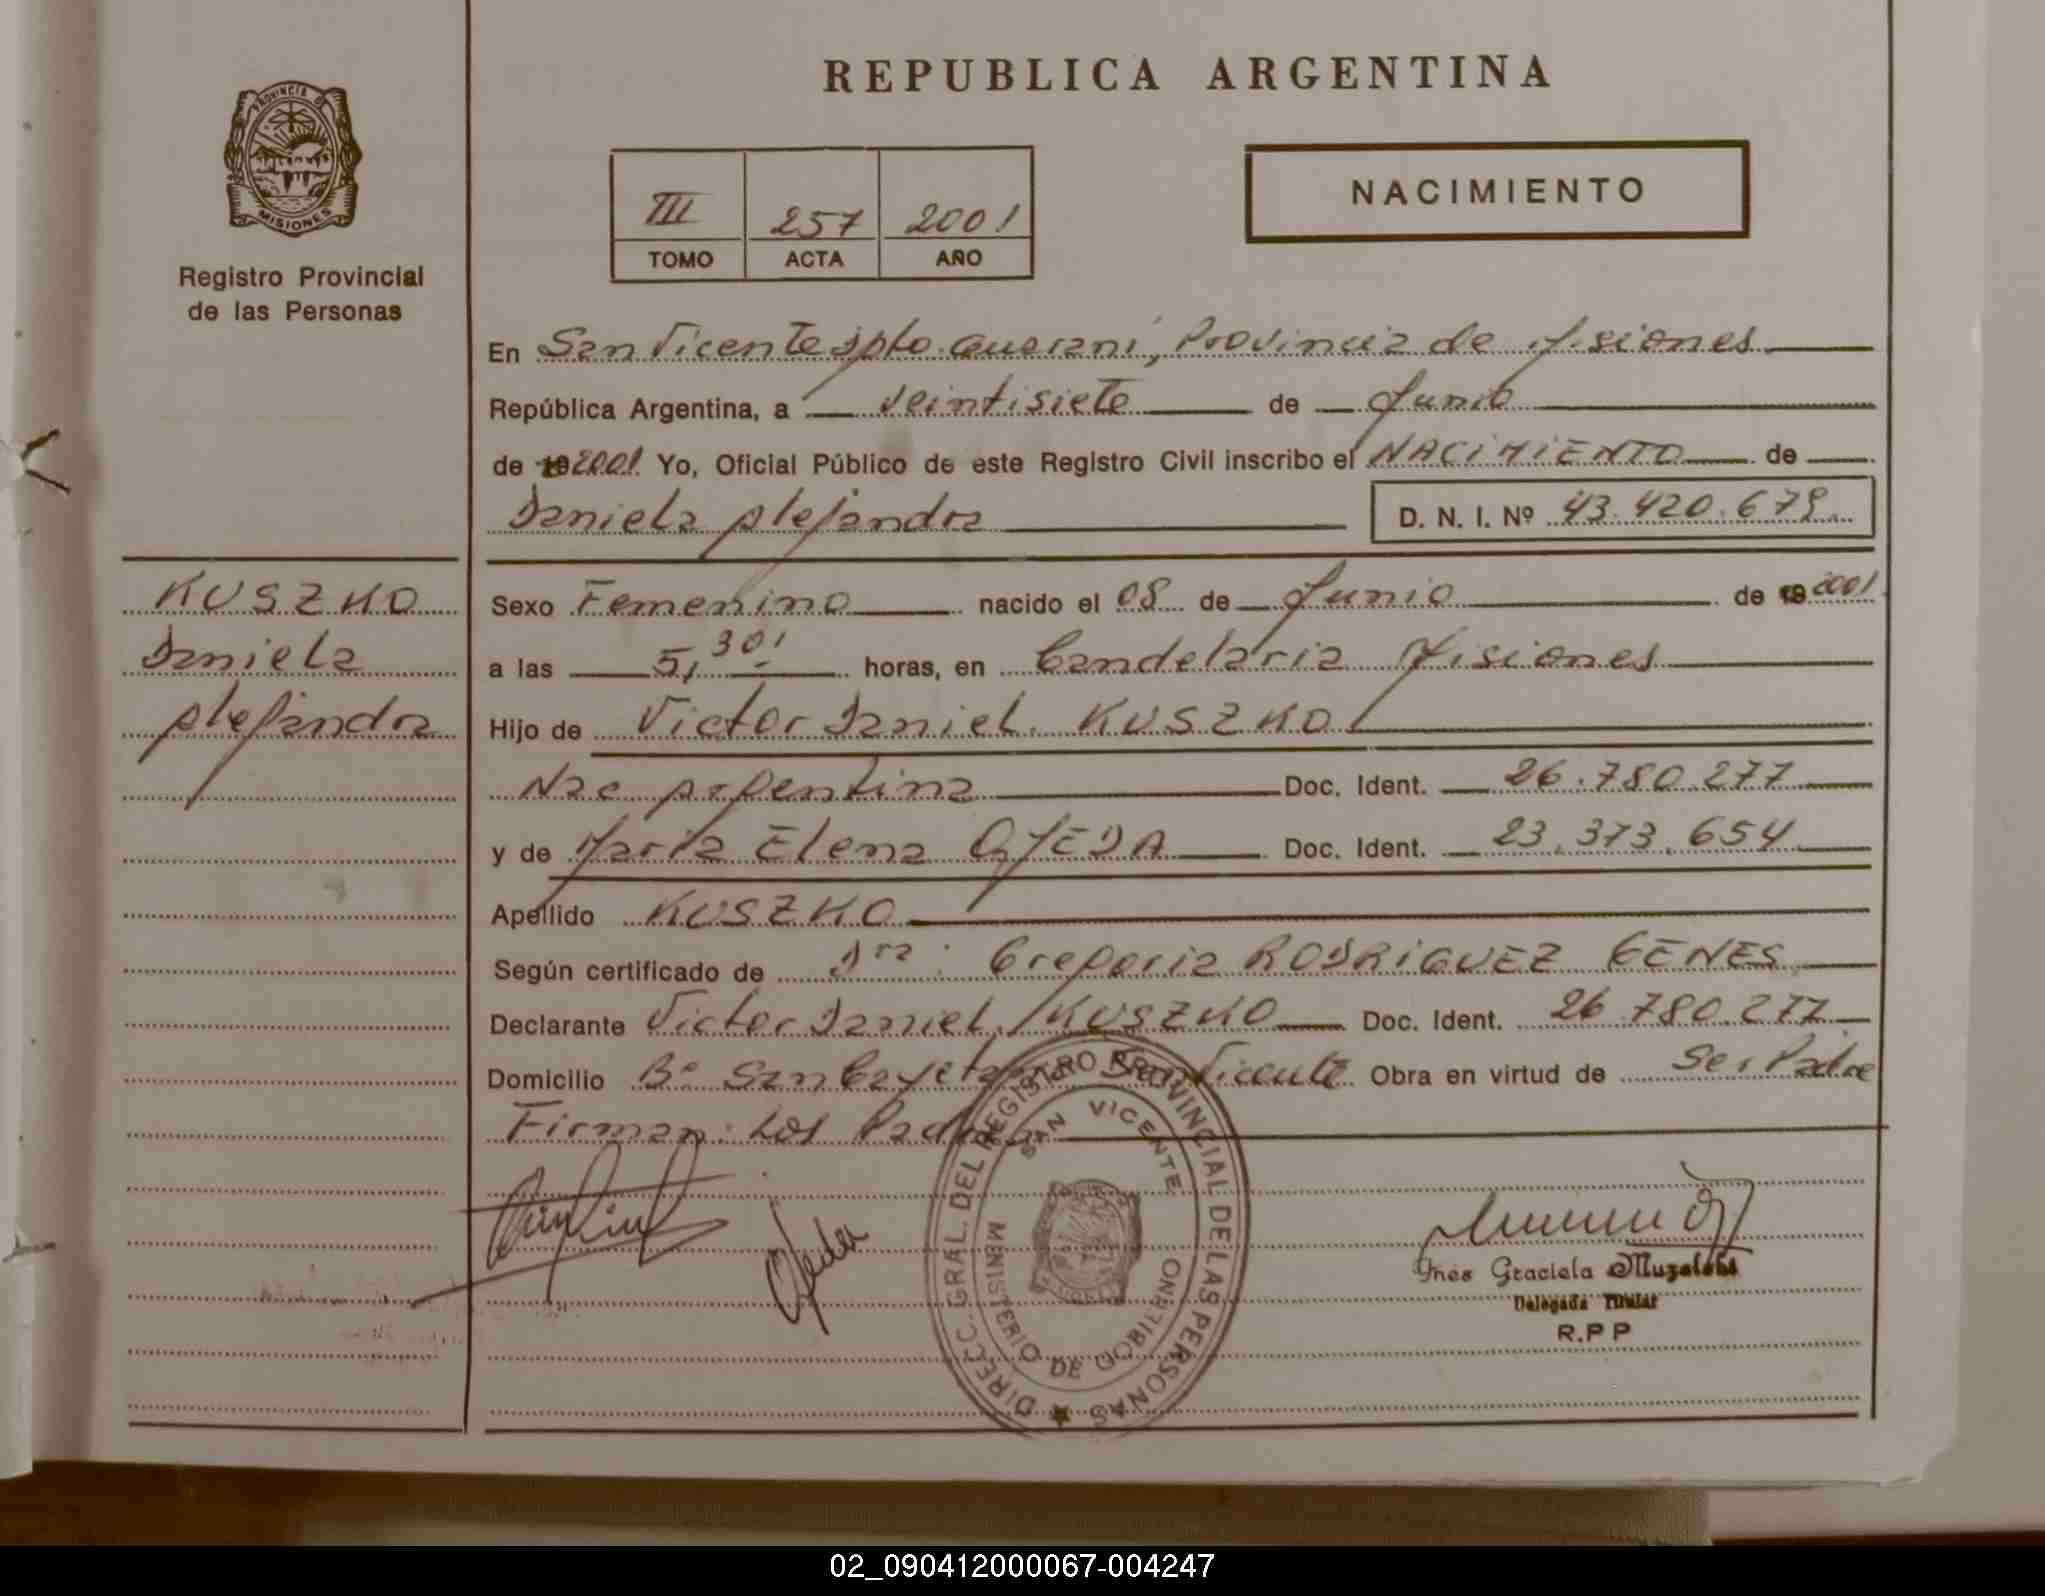 REPUBLICA ARGENTINA
PROVINCIA DE
MISIONES
Registro Provincial
de las Personas
III 257 2001
TOMO ACTA AÑO
NACIMIENTO
En San Vicente Dpto. Guarani, Provincia de Misiones
República Argentina, a veintisiete de Junio
de 19 2001 Yo, Oficial Público de este Registro Civil inscribo el NACIMIENTO de
Daniela Alejandra D. N. I. Nº 43.420.679.
KUSZKO
Daniela
Alejandra
Sexo Femenino nacido el 08 de Junio de 19 2001
a las 5,30' horas, en Candelaria Misiones
Hijo de Victor Daniel KUSZKO
Nac Argentina Doc. Ident. 26.780.277
y de Maria Elena OJEDA Doc. Ident. 23.373.654
Apellido KUSZKO
Según certificado de Dra: Gregoria RODRIGUEZ GENES
Declarante Victor Daniel KUSZKO Doc. Ident. 26.780.277
Domicilio Bº San Cayetano San Vicente Obra en virtud de Ser Padre
Firman: Los Padres
Ojeda
DIRECC. GRAL. DEL REGISTRO PROVINCIAL DE LAS PERSONAS
SAN VICENTE
MINISTERIO DE GOBIERNO
Inés Graciela
Delegada Titular
R.P P
02_090412000067-004247